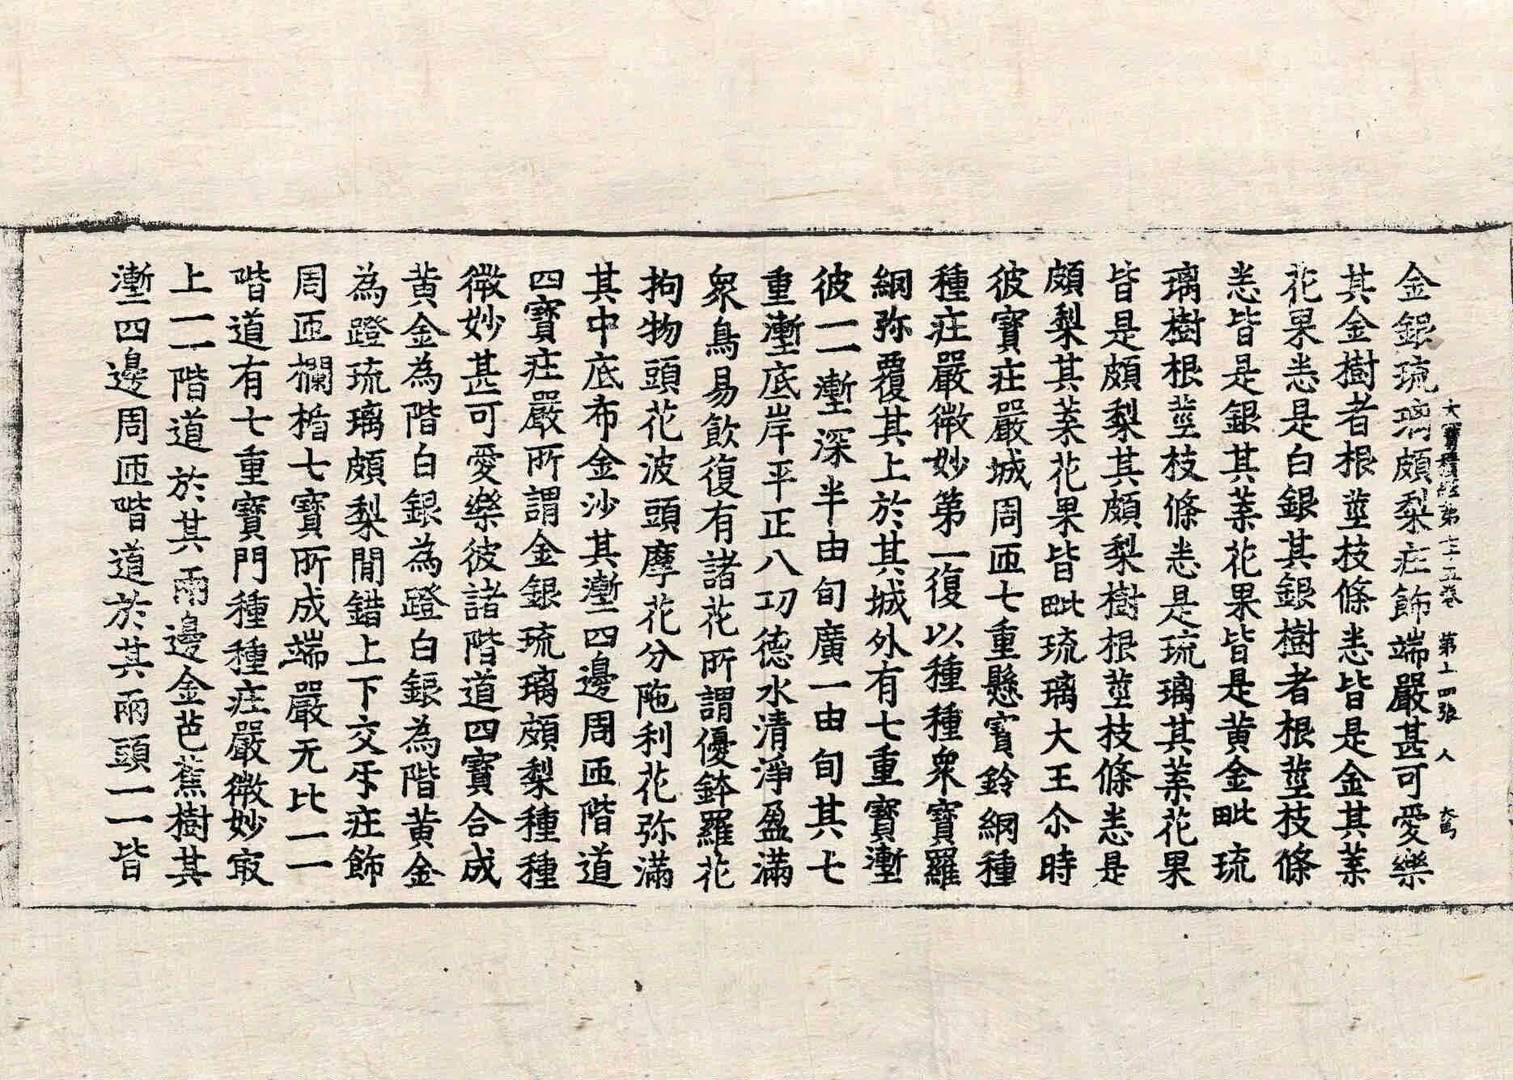 大寶積經第七十五卷 第十四張 人
金銀琉璃頗梨庄飾端嚴甚可愛樂
其金樹者根莖枝條悉皆是金其葉
花果悉是白銀其銀樹者根莖枝條
悉皆是銀其葉花果皆是黃金毗琉
璃樹根莖枝條悉是琉璃其葉花果
皆是頗梨其頗梨樹根莖枝條悉是
頗梨其葉花果皆毗琉璃大王尒時
彼寶庄嚴城周匝七重懸寶鈴網種
種庄嚴微妙第一復以種種眾寶羅
網弥覆其上於其城外有七重寶塹
彼一一塹深半由旬廣一由旬其七
重塹底岸平正八功德水清淨盈滿
眾鳥易飲復有諸花所謂優鉢羅花
拘物頭花波頭摩花分陁利花弥滿
其中底布金沙其塹四邊周匝階道
四寶庄嚴所謂金銀琉璃頗梨種種
微妙甚可愛樂彼諸階道四寶合成
黃金為階白銀為蹬白銀為階黃金
為蹬琉璃頗梨間錯上下交㸦庄飾
周匝欄楯七寶所成端嚴无比一一
階道有七重寶門種種庄嚴微妙㝡
上一一階道於其兩邊金芭蕉樹其
塹四邊周匝階道於其兩頭一一皆